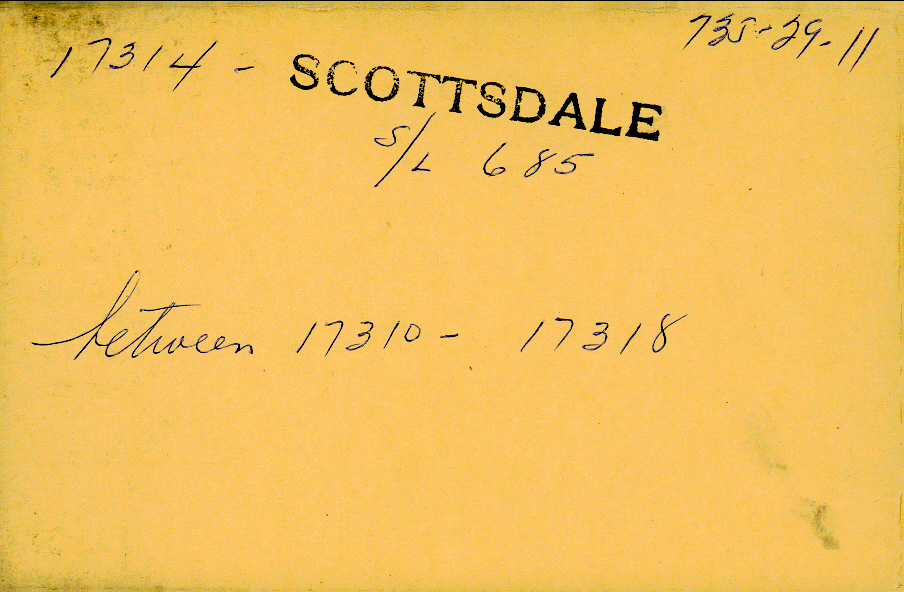 17314 - SCOTTSDALE 735-29-11
S/L 685
between 17310 - 17318